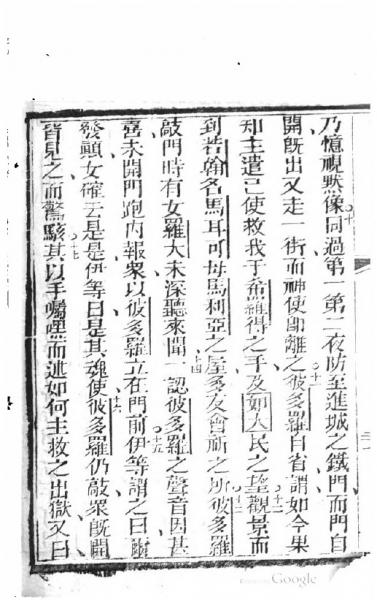 乃憶視默像同過第一第二夜防至進城之鐵門而門自
開既出又走一街而神使即離之彼多羅自省謂如今果
知主遣己使救我于希羅得之手及如大民之望觀景而
到若翰名馬耳可母馬利亞之屋多友會祈之所彼多羅
敲門時有女羅大未深聽來聞一認彼多羅之聲音因甚
喜未開門跑內報衆以彼多羅立在門前伊等謂之曰爾
發顛女確云是是伊等曰是其魂使彼多羅仍敲衆既開
皆見之而驚駭其以手囑嘿而述如何主救之出獄又曰
Google